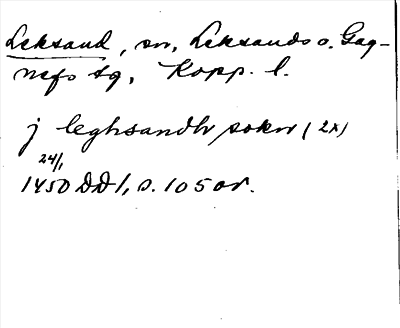 Leksand, sn, Leksands o. Gag-
nefs tg, Kopp. l.
j leghsandh sokn (2x)
24/1
1450 DD1, s. 105 or.